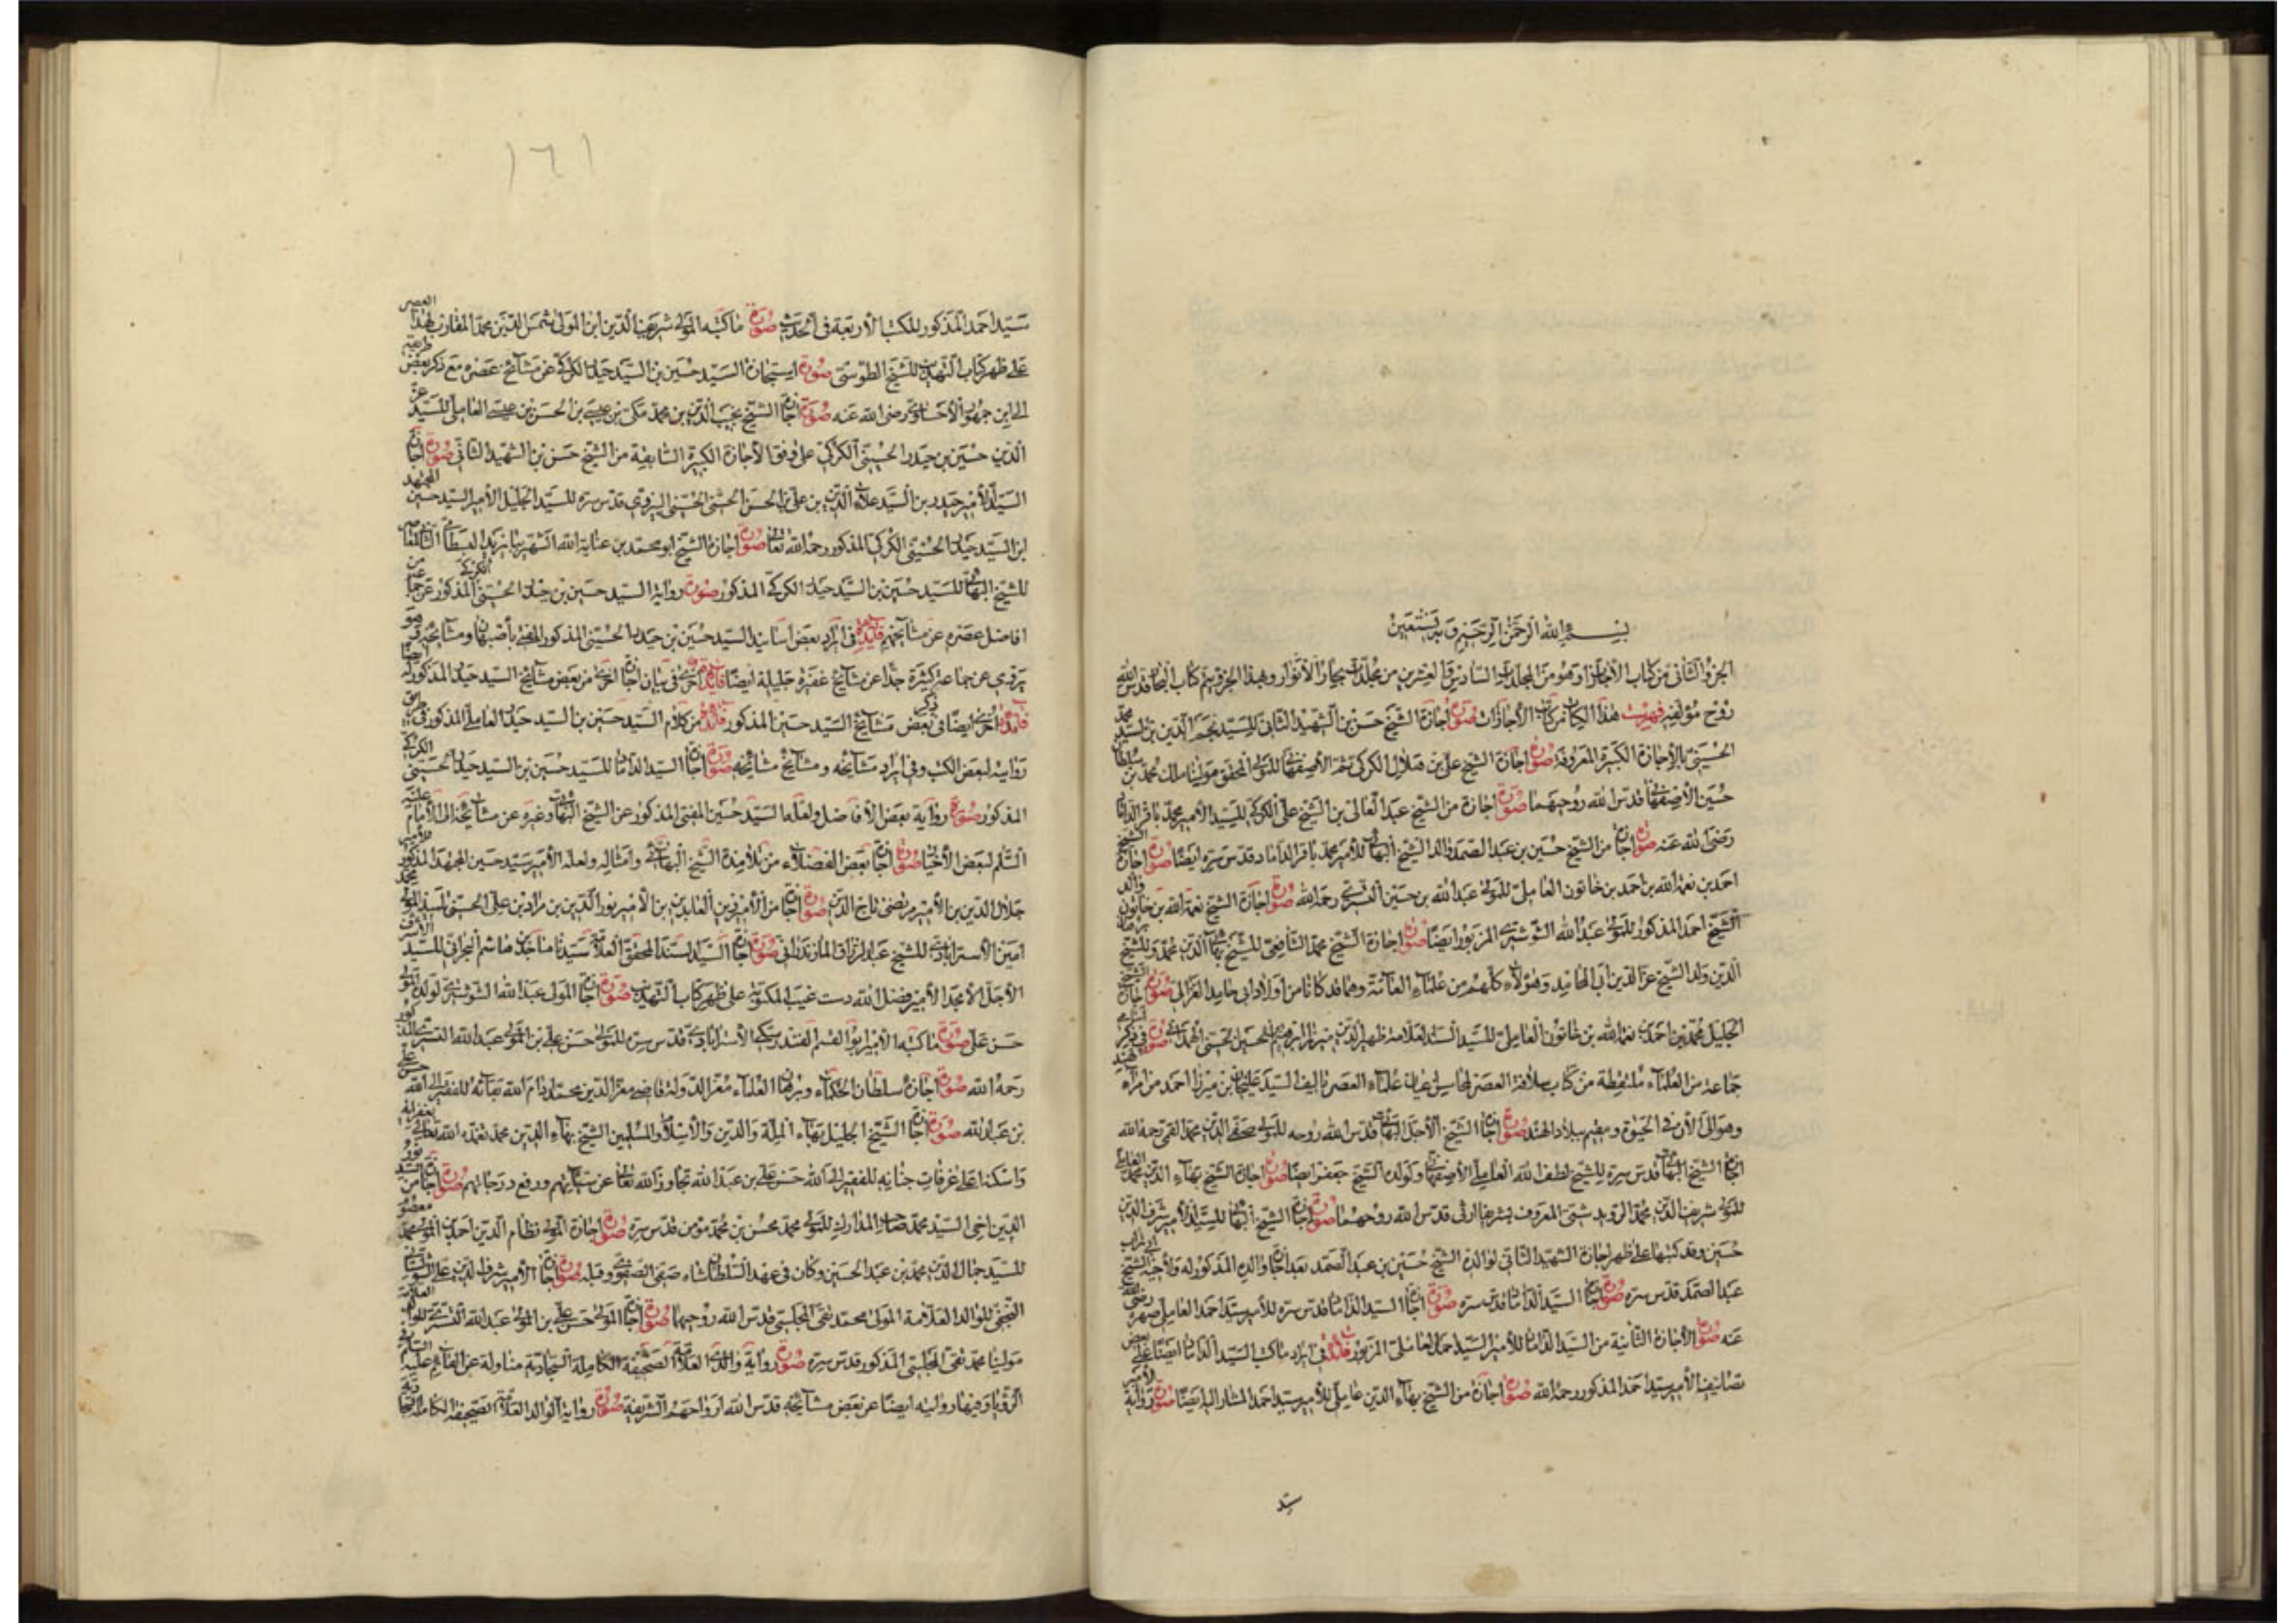 بسم الله الرحمن الرحيم وبه نستعين
الجزو الثاني من كتاب الاجازات وهو من المجلد السادس والعشرين من مجلدات بحار الانوار وبهذا الجزو يتم كتاب البحار قدس الله
روح مؤلفه فهرست هذا الكتاب من كتاب الاجازات صورة اجازة الشيخ حسن بن الشهيد الثاني للسيد نجم الدين بن السيد محمد
الحسيني بالاجازة الكبيرة المعروفة صورة اجازة الشيخ علي بن هلال الكركي ثم الاصفهاني للمولى المحقق مولينا ملك محمد بن سلطان
حسين الاصفهاني قدس الله روحيهما صورة اجازة من الشيخ عبد العالي بن الشيخ علي الكركي للسيد الامير محمد باقر الداماد
رضي الله عنه صورة اجازة من الشيخ حسين بن عبد الصمد والد الشيخ البهائي للامير محمد باقر الداماد قدس سره ايضا صورة اجازة الشيخ
احمد بن نعمة الله بن احمد بن خاتون العاملي للمولى عبد الله بن حسين التستري رحمه الله صورة اجازة الشيخ نعمة الله بن خاتون والد
الشيخ احمد المذكور للمولى عبد الله الشوشتري المزبور ايضا صورة اجازة الشيخ محمد الشافعي للشيخ بهاء الدين محمد وللشيخ
الدين ولد الشيخ عز الدين ابي المحامد وهؤلاء كلهم من علماء العامة وهما قد كانا من اولاد ابي حامد الغزالي صورة اجازة الشيخ
الجليل محمد بن احمد بن نعمة الله بن خاتون العاملي للسيد السند العلامة ظهير الدين ميرزا ابراهيم بن الحسين الحسني الهمداني صورة في ذكر اسامي
جماعة من العلماء ملتقطة من كتاب سلافة العصر لمحاسن اعيان علماء العصر تاليف السيد عليخان بن ميرزا احمد من امراء هند
وهو الى الان في الحيوة ومقيم ببلاد الهند صورة اجازة الشيخ الاجل البهائي قدس الله روحه للمولى صفي الدين محمد القمي رحمه الله
اجازة الشيخ البهائي قدس سره للشيخ لطف الله العاملي الاصفهاني ولولده الشيخ جعفر ايضا صورة اجازة الشيخ بهاء الدين محمد العاملي
للمولى شريف الدين محمد الرويدشتي المعروف بشريفا قدس الله روحهما صورة اجازة الشيخ البهائي للسيد الامير شرف الدين
حسين وقد كتبها على ظهر اجازة الشهيد الثاني لوالده الشيخ حسين بن عبد الصمد بعد اجازة والده المذكور له ولاخيه الشيخ ابي تراب
عبد الصمد قدس سره صورة اجازة السيد الداماد قدس سره صورة اجازة السيد الداماد قدس سره للامير سيد احمد العاملي صهره رضي الله
عنه صورة الاجازة الثانية من السيد الداماد للامير السيد احمد العاملي المزبور فائدة في ايراد ما كتب السيد الداماد ايضا على بعض
تصانيف الامير سيد احمد المذكور رحمه الله صورة اجازة من الشيخ بهاء الدين عاملي للامير سيد احمد المشار اليه ايضا صورة رواية الامير
سيد
١٦١
سيد احمد المذكور للكتب الاربعة في الحديث صورة ما كتبه المولى شريف الدين ابن المولى شمس الدين محمد المقارن لهذا العصر
على ظهر كتاب التهذيب للشيخ الطوسي صورة استجازة السيد حسين بن السيد حيدر الكركي عن مشائخ عصره مع ذكر بعض طريقه
الى ابن جمهور الاحساوي رضي الله عنه صورة اجازة الشيخ نجيب الدين بن محمد مكي بن عيسى بن الحسن بن عيسى العاملي للسيد عز
الدين حسين بن حيدر الحسيني الكركي على وفق الاجازة الكبيرة السابقة من الشيخ حسن بن الشهيد الثاني صورة اجازة
السيد الامير حيدر بن السيد علاء الدين بن علي بن الحسن الحسني الحسيني البيروي قدس سره للسيد الجليل الامير السيد حسين المجتهد
ابن السيد حيدر الحسيني الكركي المذكور رحمه الله تعالى صورة اجازة الشيخ ابو محمد بن عناية الله الشهير ببايزيد البسطامي الثاني
للشيخ البهائي للسيد حسين بن السيد حيدر الكركي المذكور صورة رواية السيد حسين بن حيدر الحسيني الكركي المذكور عن جماعة من
افاضل عصره عن مشايخهم فائدة في ايراد بعض اسانيد السيد حسين بن حيدر الحسيني المذكور المفتي باصبهان ومشايخه فهو
يروي عن جماعة كثيرة جدا عن مشايخ غفيرة جليلة ايضا فائدة اخرى في بيان اجازة اخرى من بعض مشائخ السيد حيدر المذكور له ايضا
فائدة اخرى ايضا في ذكر بعض مشائخ السيد حسين المذكور فائدة من كلام السيد حسين بن السيد حيدر العاملي المذكور في طرق
روايته لبعض الكتب وفي ايراد مشائخه ومشائخ مشائخه صورة اجازة السيد الداماد للسيد حسين بن السيد حيدر الحسيني الكركي
المذكور صورة رواية بعض الافاضل ولعله السيد حسين المفتي المذكور عن الشيخ البهائي وغيره عن مشائخه الى الامام عليه
السلم لبعض الاخبار صورة اجازة بعض الفضلاء من تلامذة الشيخ البهائي وامثاله ولعله الامير سيد حسين المجتهد المذكور
جلال الدين بن الامير مرتضى تاج الدين صورة اجازة من الامير زين العابدين بن الامير نور الدين بن مراد بن علي الحسيني محمد
امين الاسترابادي للشيخ عبد الرزاق المازندراني صورة اجازة السيد السند المحقق العلامة سيدنا ماجد بن هاشم البحراني للسيد
الاجل الامجد الامير فضل الله دست غيب المكتوبة على ظهر كتاب التهذيب صورة اجازة المولى عبد الله الشوشتري لولده المولى
حسن علي صورة ما كتبه الامير ابو القسم الفندرسكي الاسترابادي قدس سره للمولى حسن علي بن المولى عبد الله التستري
رحمه الله صورة اجازة سلطان الحكماء وبرهان العلماء معز الدولة قاضي معز الدين محمد ادام الله بقائه للفقير الى الله حسن علي
بن عبد الله صورة اجازة الشيخ الجليل بهاء الملة والدين والاسلام والمسلمين الشيخ بهاء الدين محمد تغمده الله تعالى بغفرانه
واسكنه اعلى غرفات جنانه للفقير الى الله حسن علي بن عبد الله تجاوز الله تعالى عن سيئاتهم ورفع درجاتهم صورة اجازة من السيد نور
الدين اخي السيد محمد صاحب المدارك للمولى محمد محسن بن محمد مؤمن قدس سره صورة اجازة المولى نظام الدين احمد بن المولى معصوم
للسيد جمال الدين محمد بن عبد الحسين وكان في عهد السلطان شاه صفي الصفوي وقبله صورة اجازة الامير شرف الدين علي الشولستاني
النجفي للوالد العلامة المولى محمد تقي المجلسي قدس الله روحهما صورة اجازة المولى حسن علي بن المولى عبد الله التستري للوالد العلامة
مولينا محمد تقي المجلسي المذكور قدس سره صورة رواية والدي العلامة الصحيفة الكاملة السجادية مناولة عن القائم عليه السلام في
الرؤيا وفيها روايته ايضا عن بعض مشائخه قدس الله ارواحهم الشريفة صورة رواية الوالد العلامة الصحيفة الكاملة